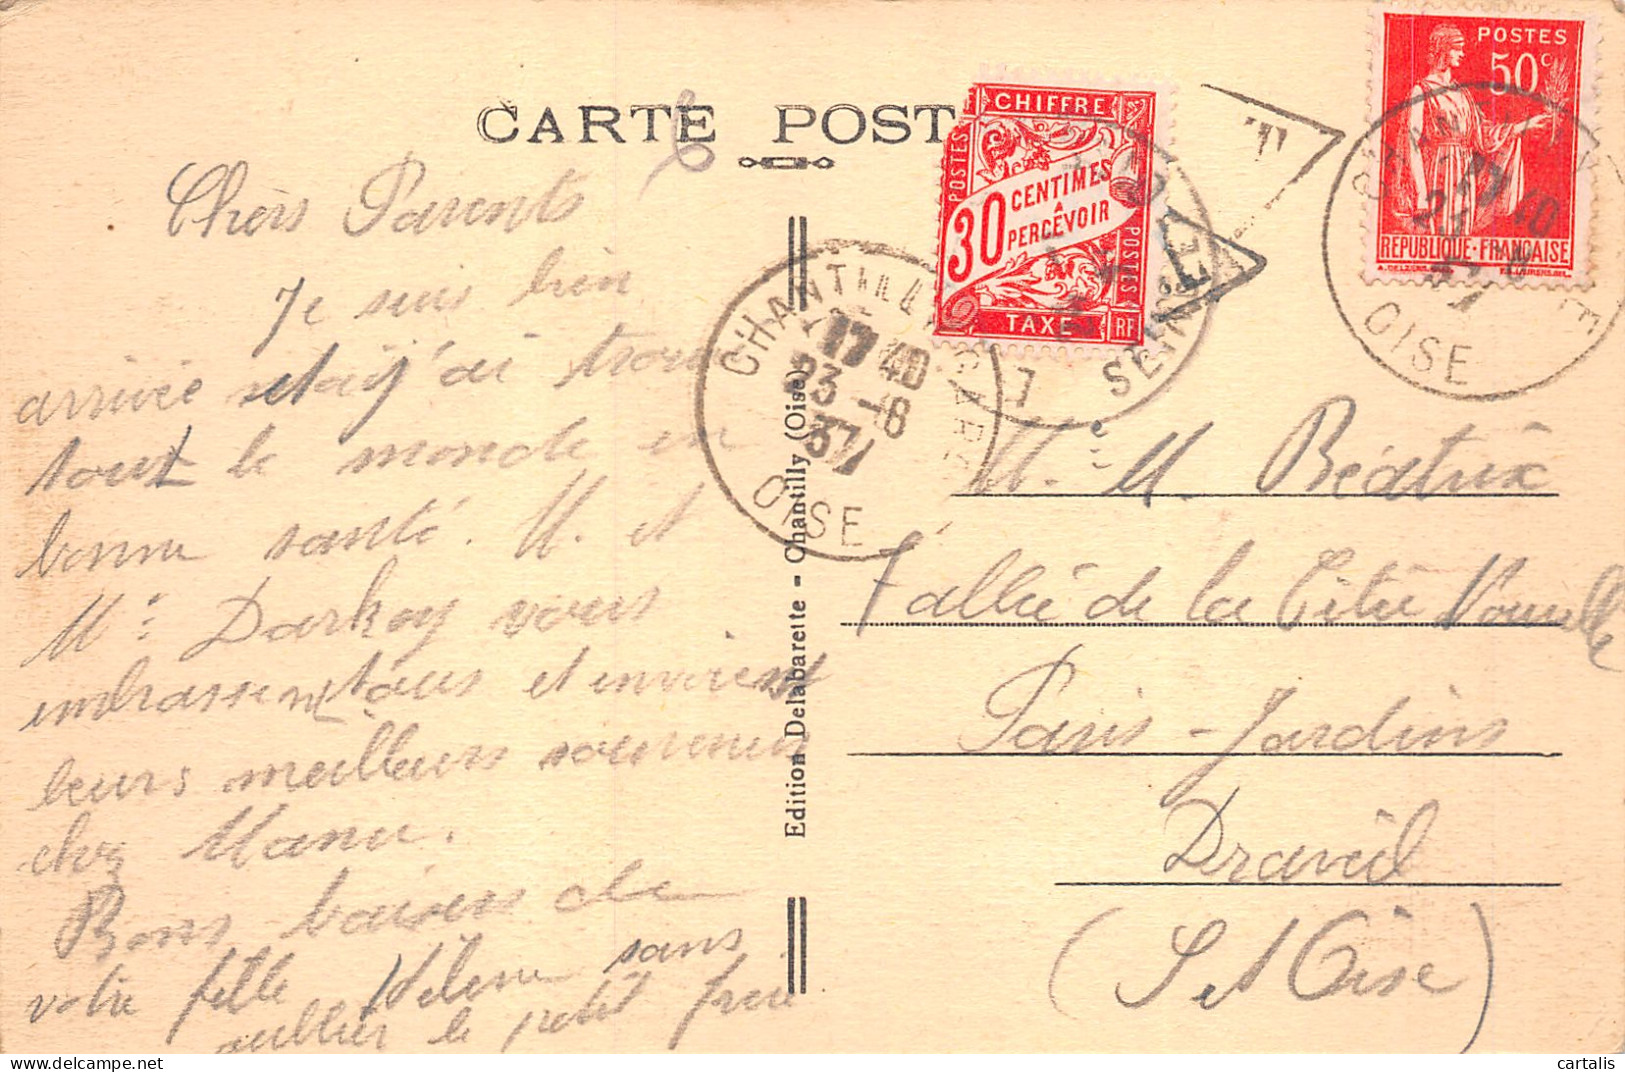 CARTE POST
Chers Parents
Je suis bien
arrivée et j'ai trouvé
tout le monde en
bonne santé. M. et
Mme Darkoy vous
embrassent tous et envoient
leurs meilleurs souvenirs
chez Manu.
Bons baisers de
votre fille Hélène sans
oublier le petit frère
Edition Delabarette - Chantilly (Oise)
CHIFFRE
POSTES
30 CENTIMES
A
PERCEVOIR
POSTES
TAXE RF
T
POSTES
50c
REPUBLIQUE·FRANÇAISE
CHANTILLY GARE
17 40
23 -8
37
OISE
SEINE
17 40
23
OISE
M. Me M. Béatrix
1 allée de la Cité Nouvelle
Paris-Jardins
Draveil
(S et Oise)
cartalis